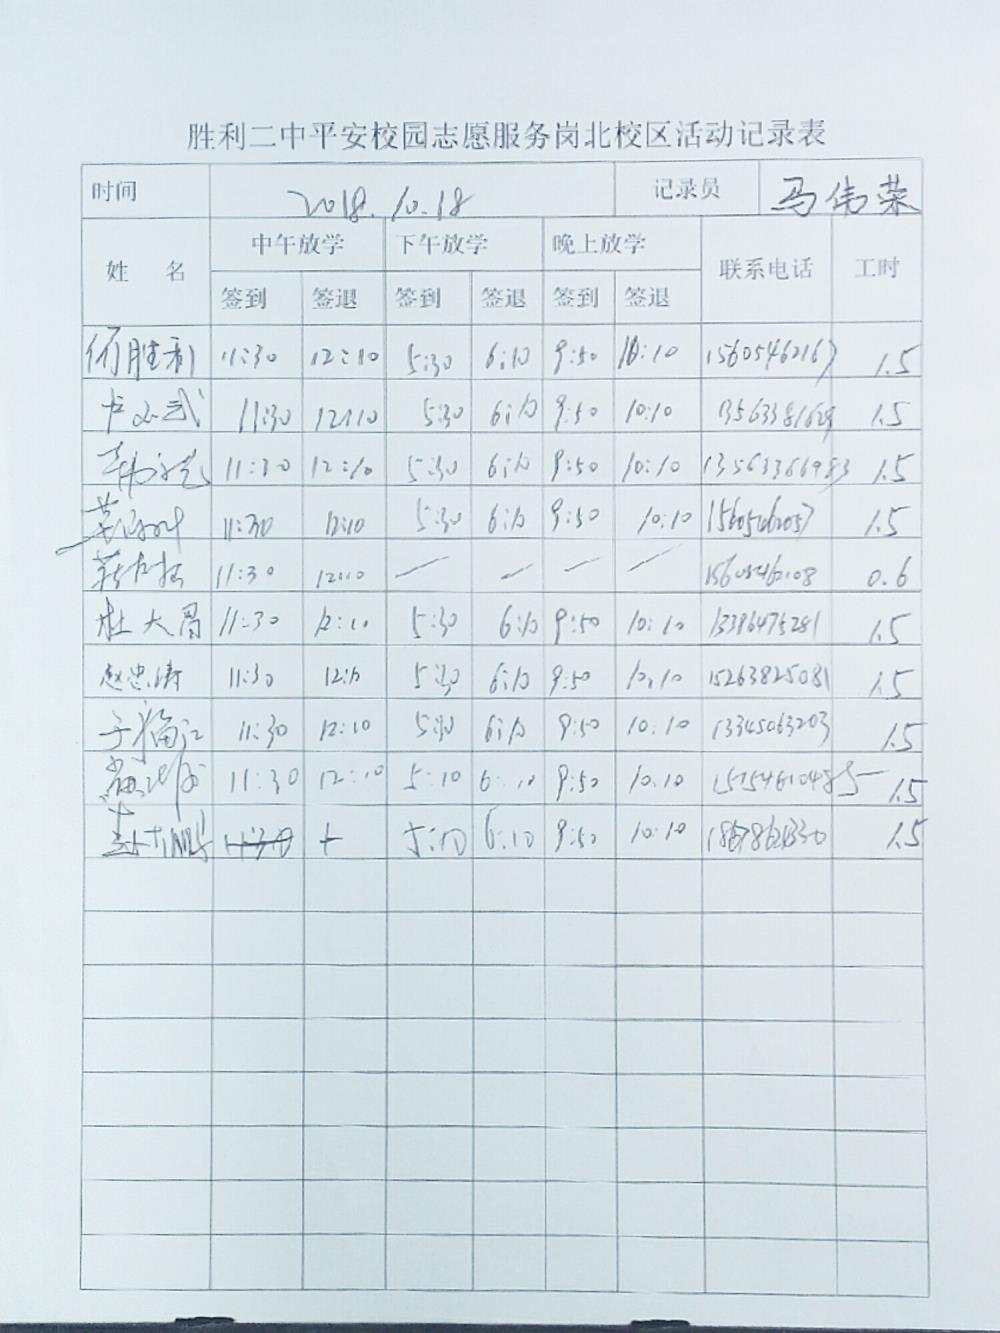 胜利二中平安校园志愿服务岗北校区活动记录表
时间 2018.10.18 记录员 马伟荣
姓 名 中午放学 下午放学 晚上放学 联系电话 工时
签到 签退 签到 签退 签到 签退
胜利 11:30 12:10 5:30 6:10 9:50 10:10 15605462167 1.5
11:30 12:10 5:30 6:10 9:50 10:10 1.5
11:30 12:10 5:30 6:10 9:50 10:10 13563366983 1.5
11:30 12:10 5:30 6:10 9:50 10:10 1.5
11:30 12:10 — — — — 15605462108 0.6
杜大胃 11:30 12:10 5:30 6:10 9:50 10:10 13386475281 1.5
赵忠涛 11:30 12:10 5:30 6:10 9:50 10:10 15263825081 1.5
于福江 11:30 12:10 5:30 6:10 9:50 10:10 13345063203 1.5
11:30 12:10 5:10 6:10 9:50 10:10 1.5
6:10 9:50 10:10 1.5